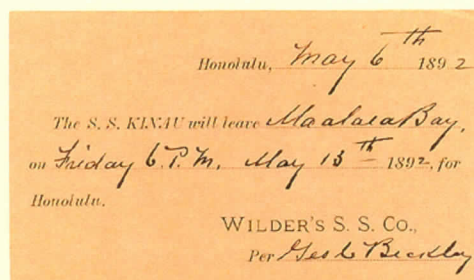 Honolulu, May 6th 1892
The S. S. KINAU will leave Maalaea Bay,
on Friday 6 P.M. May 13th 1892, for
Honolulu.
WILDER'S S. S. CO.,
Per Geo C Beckley